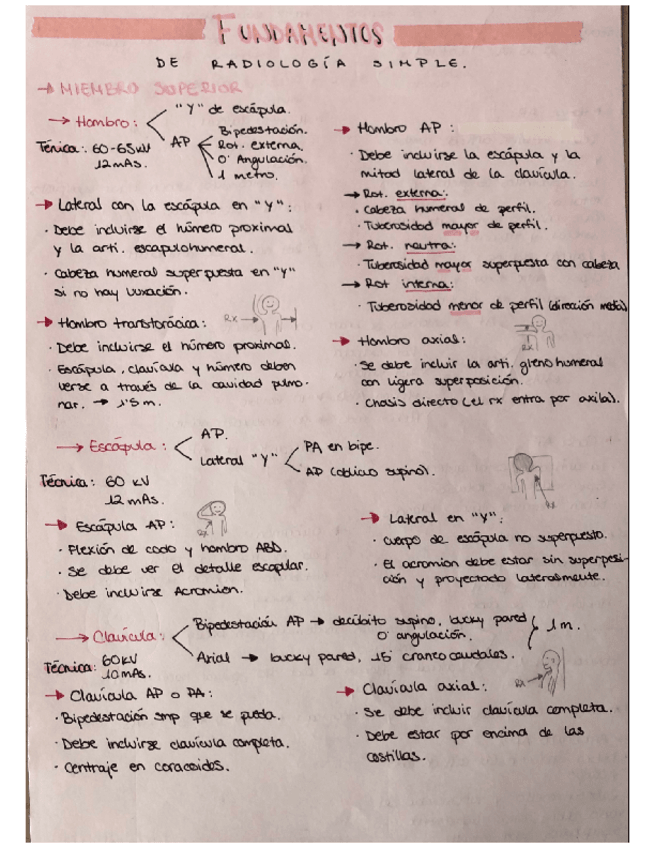 FUNDAMENTOS
DE RADIOLOGÍA SIMPLE.
→ MIEMBRO SUPERIOR
→ Hombro:
"Y" de escápula.
AP
Bipedestación.
Rot. externa.
0° Angulación.
1 metro.
Ténica: 60-65kV
12 mAs.
→ Lateral con la escápula en "Y":
· Debe incluirse el húmero proximal
y la arti. escapulohumeral.
· Cabeza humeral superpuesta en "Y"
si no hay luxación.
→ Hombro transtorácica:
RX →
· Debe incluirse el húmero proximal.
· Escápula, clavícula y húmero deben
verse a través de la cavidad pulmo-
nar. → 1'5 m.
→ Hombro AP:
· Debe incluirse la escápula y la
mitad lateral de la clavícula.
→ Rot. externa:
· Cabeza humeral de perfil.
· Tuberosidad mayor de perfil.
→ Rot. neutra:
· Tuberosidad mayor superpuesta con cabeza
→ Rot interna:
· Tuberosidad menor de perfil (dirección medial)
→ Hombro axial:
RX
· Se debe incluir la arti. glenohumeral
con ligera superposición.
· Chasis directo (el rx entra por axila).
→ Escápula:
AP.
Lateral "Y"
PA en bipe.
AP (oblicuo supino).
Técnica: 60 kV
12 mAs.
→ Escápula AP:
RX
· Flexión de codo y hombro ABD.
· Se debe ver el detalle escapular.
· Debe incluirse Acromion.
→ Lateral en "Y":
RX
· Cuerpo de escápula no superpuesto.
· El acromion debe estar sin superposi-
ción y proyectado lateralmente.
→ Clavícula:
Bipedestación AP → decúbito supino, bucky pared
0° angulación.
Axial → bucky pared, 15° craneocaudales.
1m.
Técnica: 60kV
10 mAs.
→ Clavícula AP o PA:
· Bipedestación smp que se pueda.
· Debe incluirse clavícula completa.
· Centraje en coracoides.
→ Clavícula axial:
RX
· Se debe incluir clavícula completa.
· Debe estar por encima de las
costillas.